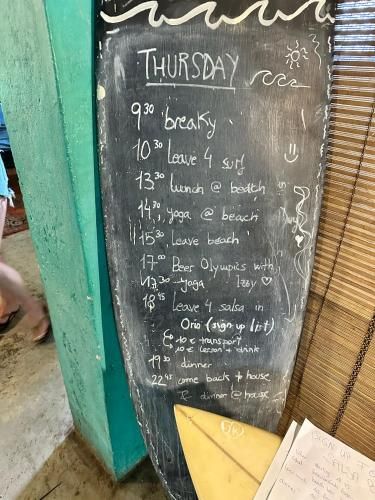 THURSDAY
9³⁰ breaky
10³⁰ Leave 4 surf
13³⁰ lunch @ beach
14³⁰ yoga @ beach
15³⁰ leave beach
17⁰⁰ Beer Olympics with
Izzy ♡
17³⁰ yoga
18⁴⁵ leave 4 salsa in
Orio (sign up list)
→ 10 € transport
→ 10 € lesson + drink
19³⁰ dinner
22⁴⁵ come back to house
dinner @ house
SIGN UP